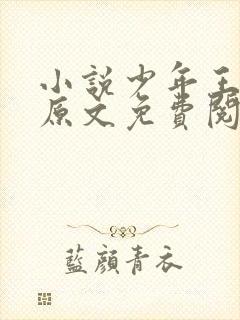 小說少年王
原文免費閱
藍顏青衣